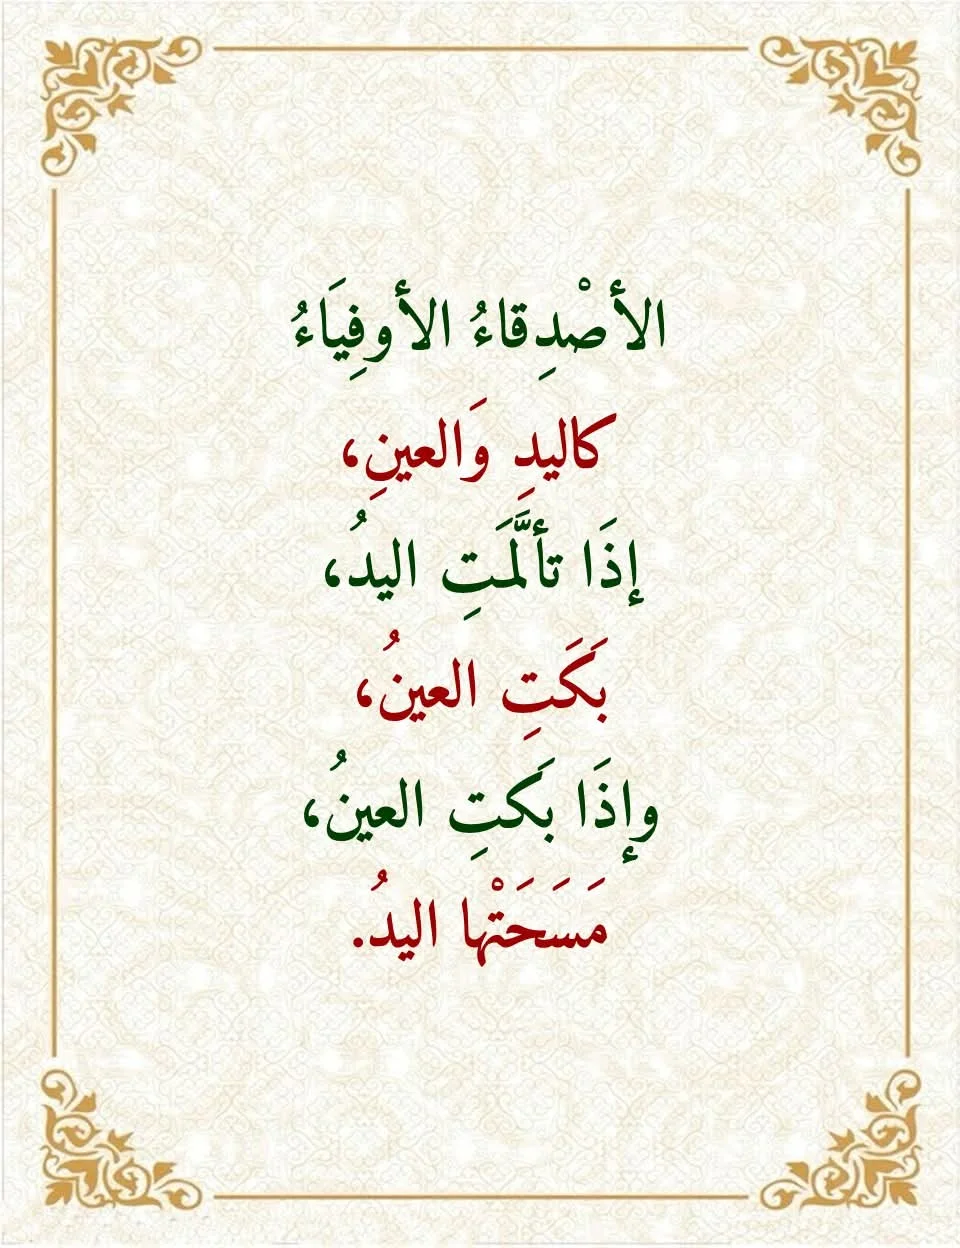 الأصْدِقاءُ الأوفِيَاءُ
كاليدِ وَالعينِ،
إذَا تألَّمَتِ اليدُ،
بَكَتِ العينُ،
وإذَا بَكتِ العينُ،
مَسَحَتْها اليدُ.